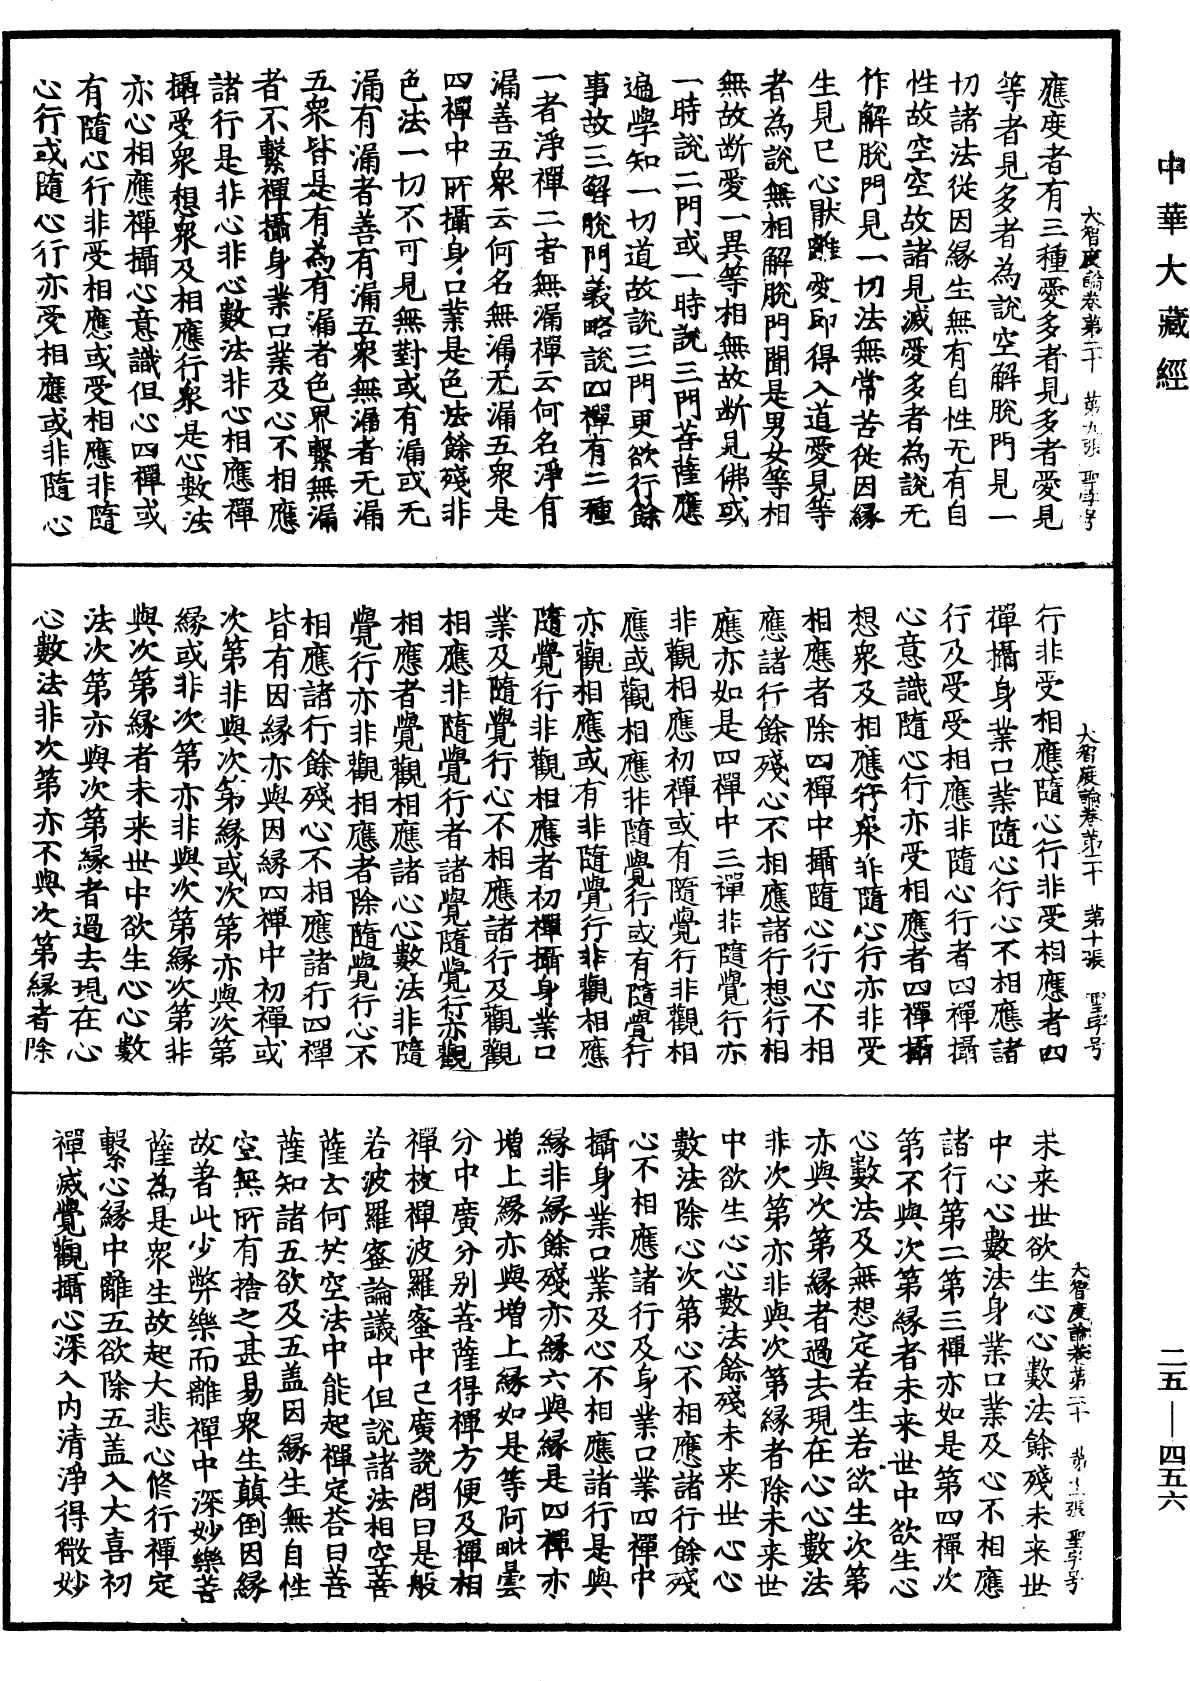 中華大藏經
二五—四五六
大智度論卷第二十 第九張 聖字号
應度者有三種愛多者見多者愛見
等者見多者為說空解脫門見一
切諸法從因緣生無有自性无有自
性故空空故諸見滅愛多者為說无
作解脫門見一切法無常苦從因緣
生見已心猒離愛即得入道愛見等
者為說無相解脫門聞是男女等相
無故断愛一異等相無故断見佛或
一時說二門或一時說三門菩薩應
遍學知一切道故說三門更欲行餘
事故三解脫門義略說四禪有二種
一者淨禪二者無漏禪云何名淨有
漏善五衆云何名無漏无漏五衆是
四禪中所攝身口業是色法餘殘非
色法一切不可見無對或有漏或无
漏有漏者善有漏五衆無漏者无漏
五衆皆是有為有漏者色界繫無漏
者不繫禪攝身業口業及心不相應
諸行是非心非心數法非心相應禪
攝受衆想衆及相應行衆是心數法
亦心相應禪攝心意識但心四禪或
有隨心行非受相應或受相應非隨
心行或隨心行亦受相應或非隨心
大智度論卷第二十 第十張 聖字号
行非受相應隨心行非受相應者四
禪攝身業口業隨心行心不相應諸
行及受受相應非隨心行者四禪攝
心意識隨心行亦受相應者四禪攝
想衆及相應行衆非隨心行亦非受
相應者除四禪中攝隨心行心不相
應諸行餘殘心不相應諸行想行相
應亦如是四禪中三禪非隨覺行亦
非觀相應初禪或有隨覺行非觀相
應或觀相應非隨覺行或有隨覺行
亦觀相應或有非隨覺行非觀相應
隨覺行非觀相應者初禪攝身業口
業及隨覺行心不相應諸行及觀觀
相應非隨覺行者諸覺隨覺行亦觀
相應者覺觀相應諸心心數法非隨
覺行亦非觀相應者除隨覺行心不
相應諸行餘殘心不相應諸行四禪
皆有因緣亦與因緣四禪中初禪或
次第非與次第緣或次第亦與次第
緣或非次第亦非與次第緣次第非
與次第緣者未来世中欲生心心數
法次第亦與次第緣者過去現在心
心數法非次第亦不與次第緣者除
大智度論卷第二十 第十一張 聖字号
未来世欲生心心數法餘殘未来世
中心心數法身業口業及心不相應
諸行第二第三禪亦如是第四禪次
第不與次第緣者未来世中欲生心
心數法及無想定若生若欲生次第
亦與次第緣者過去現在心心數法
非次第亦非與次第緣者除未来世
中欲生心心數法餘殘未来世心心
數法除心次第心不相應諸行餘殘
心不相應諸行及身業口業四禪中
攝身業口業及心不相應諸行是與
緣非緣餘殘亦緣亦與緣是四禪亦
增上緣亦與增上緣如是等阿毗曇
分中廣分别菩薩得禪方便及禪相
禪枝禪波羅蜜中已廣說問曰是般
若波羅蜜論議中但說諸法相空菩
薩云何於空法中能起禪定荅曰菩
薩知諸五欲及五盖因緣生無自性
空無所有捨之甚易衆生顛倒因緣
故著此少弊樂而離禪中深妙樂菩
薩為是衆生故起大悲心修行禪定
繫心緣中離五欲除五盖入大喜初
禪滅覺觀攝心深入内清淨得微妙